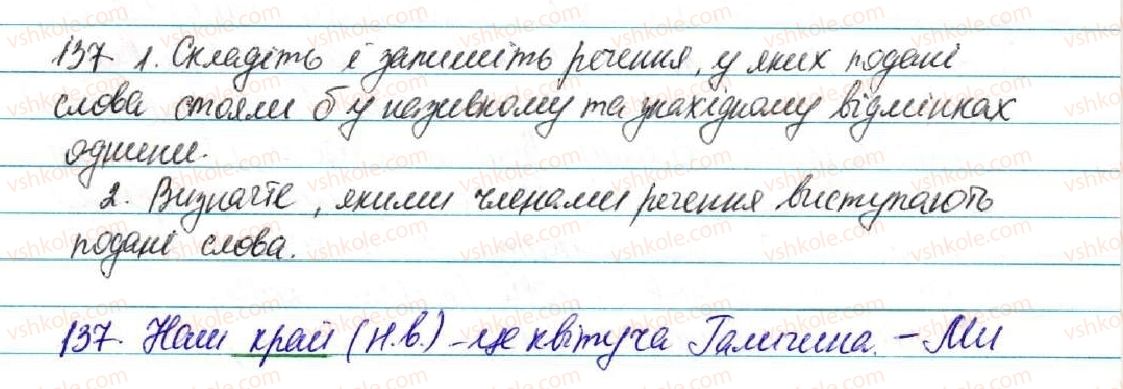 137 1. Складіть і запишіть речення, у яких подані
слова стояли б у називному та знахідному відмінках
однини.
2. Визначте, якими членами речення виступають
подані слова.
137. Наш край (Н.в.) – це квітуча Галичина. – Ми